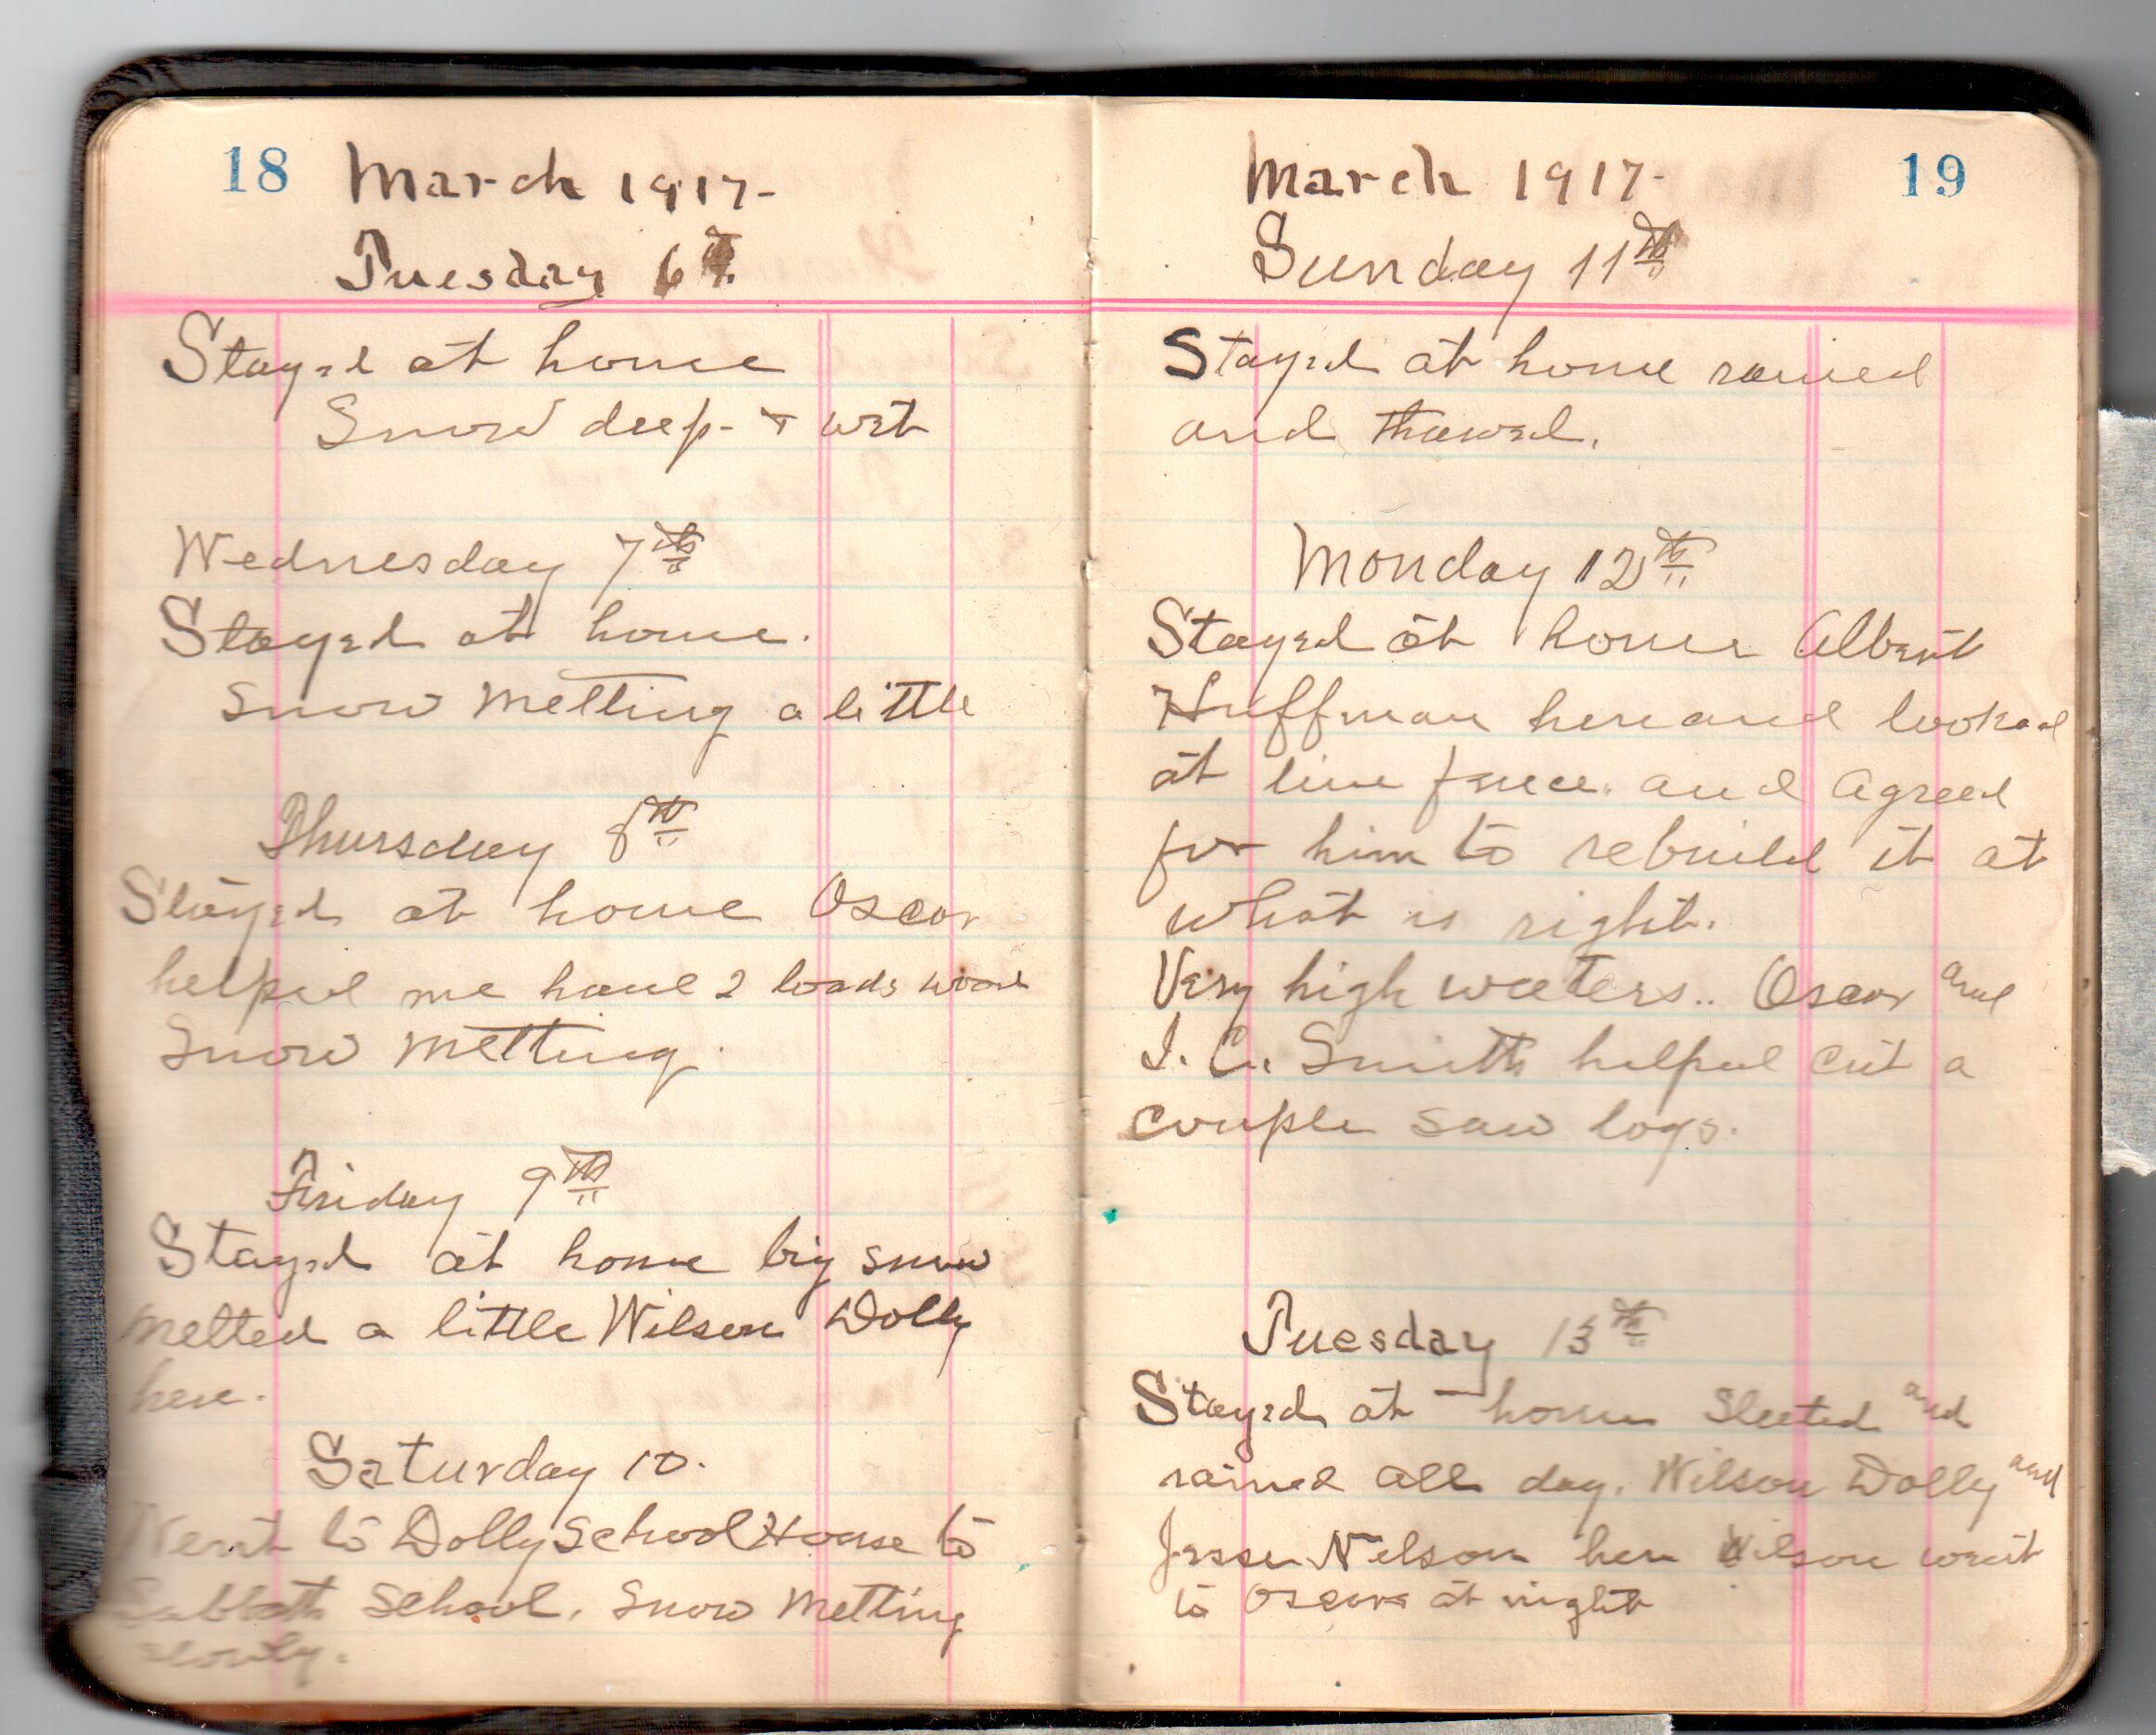 18 March 1917-
Tuesday 6th
Stayed at home
Snow deep- & wet
Wednesday 7th
Stayed at home.
Snow melting a little
Thursday 8th
Stayed at home Oscar
helped me haul 2 loads wood
Snow melting.
Friday 9th
Stayed at home big snow
melted a little Wilson Dolly
here.
Saturday 10.
Went to Dolly School House to
Sabbath School. Snow melting
slowly.
March 1917- 19
Sunday 11th
Stayed at home rained
and thawed.
Monday 12th
Stayed at home Albert
Huffman here and looked
at line fence. and agreed
for him to rebuild it at
what is right.
Very high waters.. Oscar and
I. C. Smith helped cut a
couple saw logs.
Tuesday 13th
Stayed at home Sleeted and
rained all day. Wilson Dolly and
Jesse Nelson here Wilson went
to Oscars at night